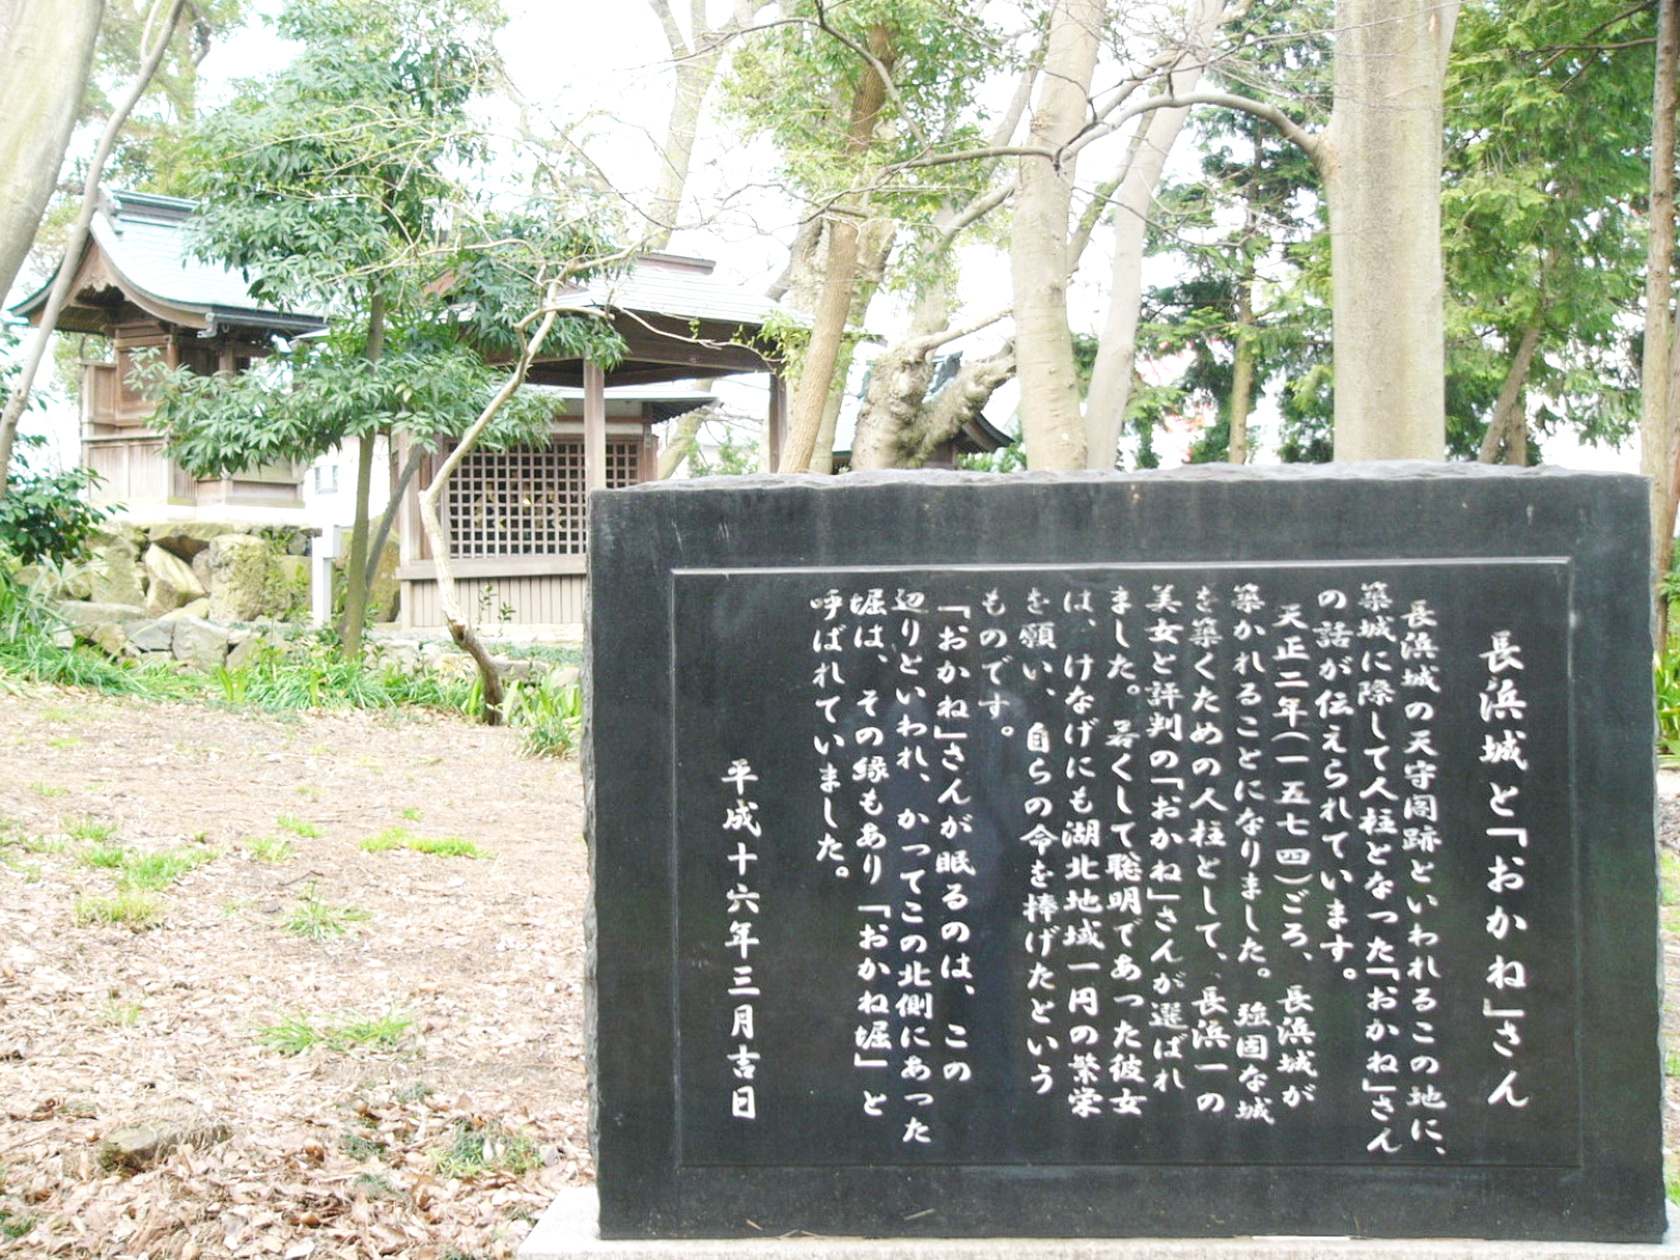 長浜城と「おかね」さん
長浜城の天守閣跡といわれるこの地に、
築城に際して人柱となった「おかね」さん
の話が伝えられています。
天正二年(一五七四)ごろ、長浜城が
築かれることになりました。強固な城
を築くための人柱として、長浜一の
美女と評判の「おかね」さんが選ばれ
ました。若くして聡明であった彼女
は、けなげにも湖北地域一円の繁栄
を願い、自らの命を捧げたという
ものです。
「おかね」さんが眠るのは、この
辺りといわれ、かつてこの北側にあった
堀は、その縁もあり「おかね堀」と
呼ばれていました。
平成十六年三月吉日